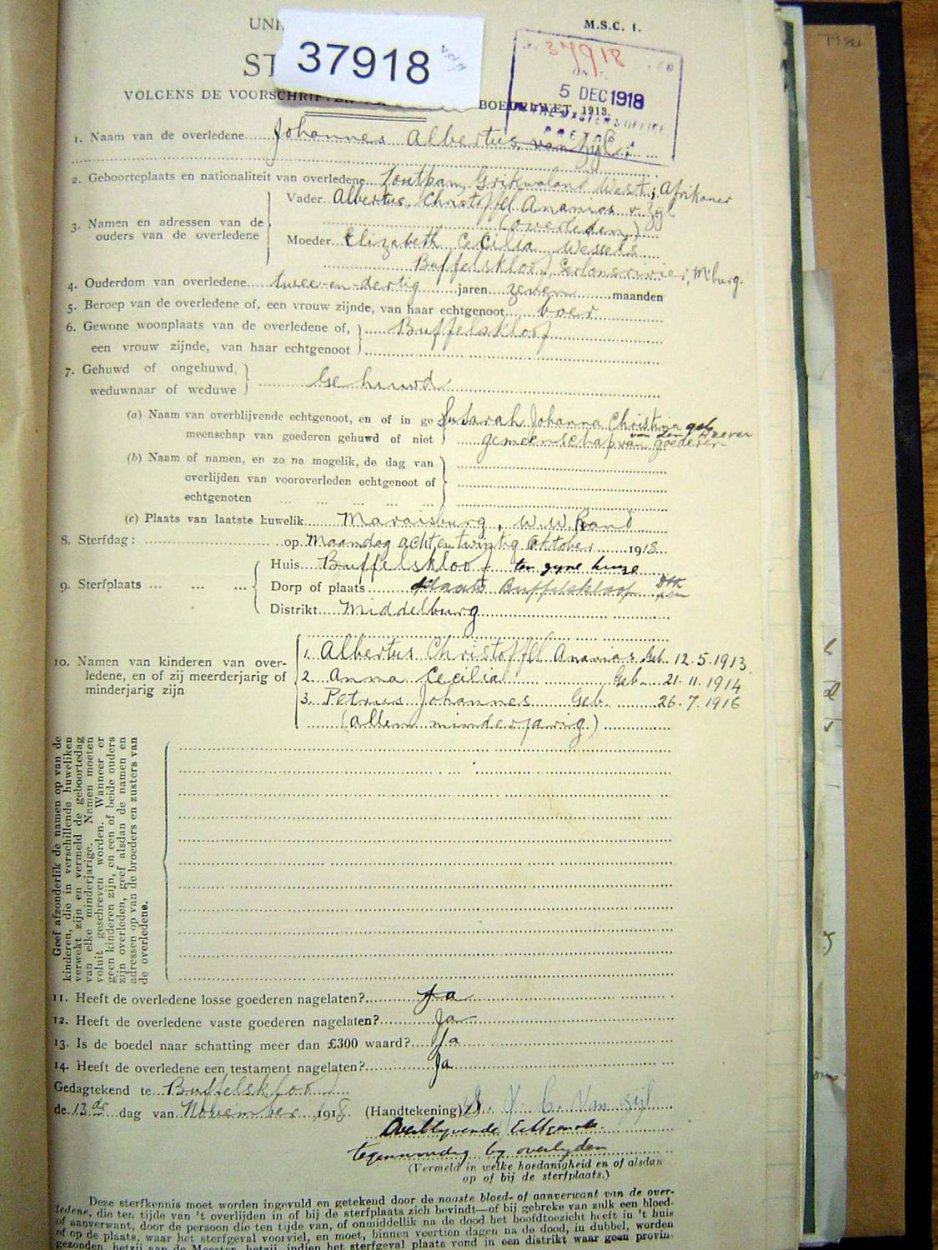 UNI
M.S.C. 1.
37918
ST
37918
5 DEC 1918
VOLGENS DE VOORSCHRIFTEN BOEDELWET, 1913.
1. Naam van de overledene Johannes Albertus van Zyl.
2. Geboorteplaats en nationaliteit van overledene Zoutpan, Grikwaland West; Afrikaner
3. Namen en adressen van de ouders van de overledene
Vader Albertus Christoffel Ananias v. Zyl
(overleden)
Moeder Elizabeth Cecilia Wessels
Buffelskloof, M'burg.
4. Ouderdom van overledene twee-en-dertig jaren zeven maanden
5. Beroep van de overledene of, een vrouw zijnde, van haar echtgenoot boer
6. Gewone woonplaats van de overledene of, Buffelskloof
een vrouw zijnde, van haar echtgenoot
7. Gehuwd of ongehuwd,
weduwnaar of weduwe Gehuwd
(a) Naam van overblijvende echtgenoot, en of in ge Sarah Johanna Christina geb
meenschap van goederen gehuwd of niet gemeenschap van goederen
(b) Naam of namen, en zo na mogelik, de dag van
overlijden van vooroverleden echtgenoot of
echtgenoten
(c) Plaats van laatste huwelik Maraisburg, W.W. Rand
8. Sterfdag: op Maandag acht en twintig Oktober 1918
9. Sterfplaats
Huis Buffelskloof ten zyne huize
Dorp of plaats plaats Buffelskloof
Distrikt Middelburg
10. Namen van kinderen van over-
ledene, en of zij meerderjarig of
minderjarig zijn
1. Albertus Christoffel Ananias Geb. 12.5.1913
2. Anna Cecilia Geb. 21.11.1914
3. Petrus Johannes Geb. 26.7.1916
(allen minderjarig)
Geef afzonderlik de namen op van de
kinderen, die in verschillende huweliken
verwekt zijn en vermeld de geboortedag
van elke minderjarige. Namen moeten
voluit geschreven worden. Wanneer er
geen kinderen zijn, en een of beide ouders
zijn overleden, geef alsdan de namen en
adressen op van de broeders en zusters van
de overledene.
11. Heeft de overledene losse goederen nagelaten? Ja
12. Heeft de overledene vaste goederen nagelaten? Ja
13. Is de boedel naar schatting meer dan £300 waard? Ja
14. Heeft de overledene een testament nagelaten? Ja
Gedagtekend te Buffelskloof
de 13de dag van November 1918 (Handtekening) Van Zijl
Overblyvende Echtgenote
tegenwoordig by overlyden
(Vermeld in welke hoedanigheid en of alsdan
op of bij de sterfplaats.)
Deze sterfkennis moet worden ingevuld en getekend door de naaste bloed- of aanverwant van de over-
ledene, die ten tijde van 't overlijden in of bij de sterfplaats zich bevindt—of bij gebreke van zulk een bloed-
of aanverwant, door de persoon die ten tijde van, of onmiddellik na de dood het hoofdtoezicht heeft in 't huis
of op de plaats, waar het sterfgeval voorviel, en moet, binnen veertien dagen na de dood, in dubbel, worden
gezonden hetzij aan de Meester, hetzij, indien het sterfgeval plaats vond in een distrikt waar geen provin-